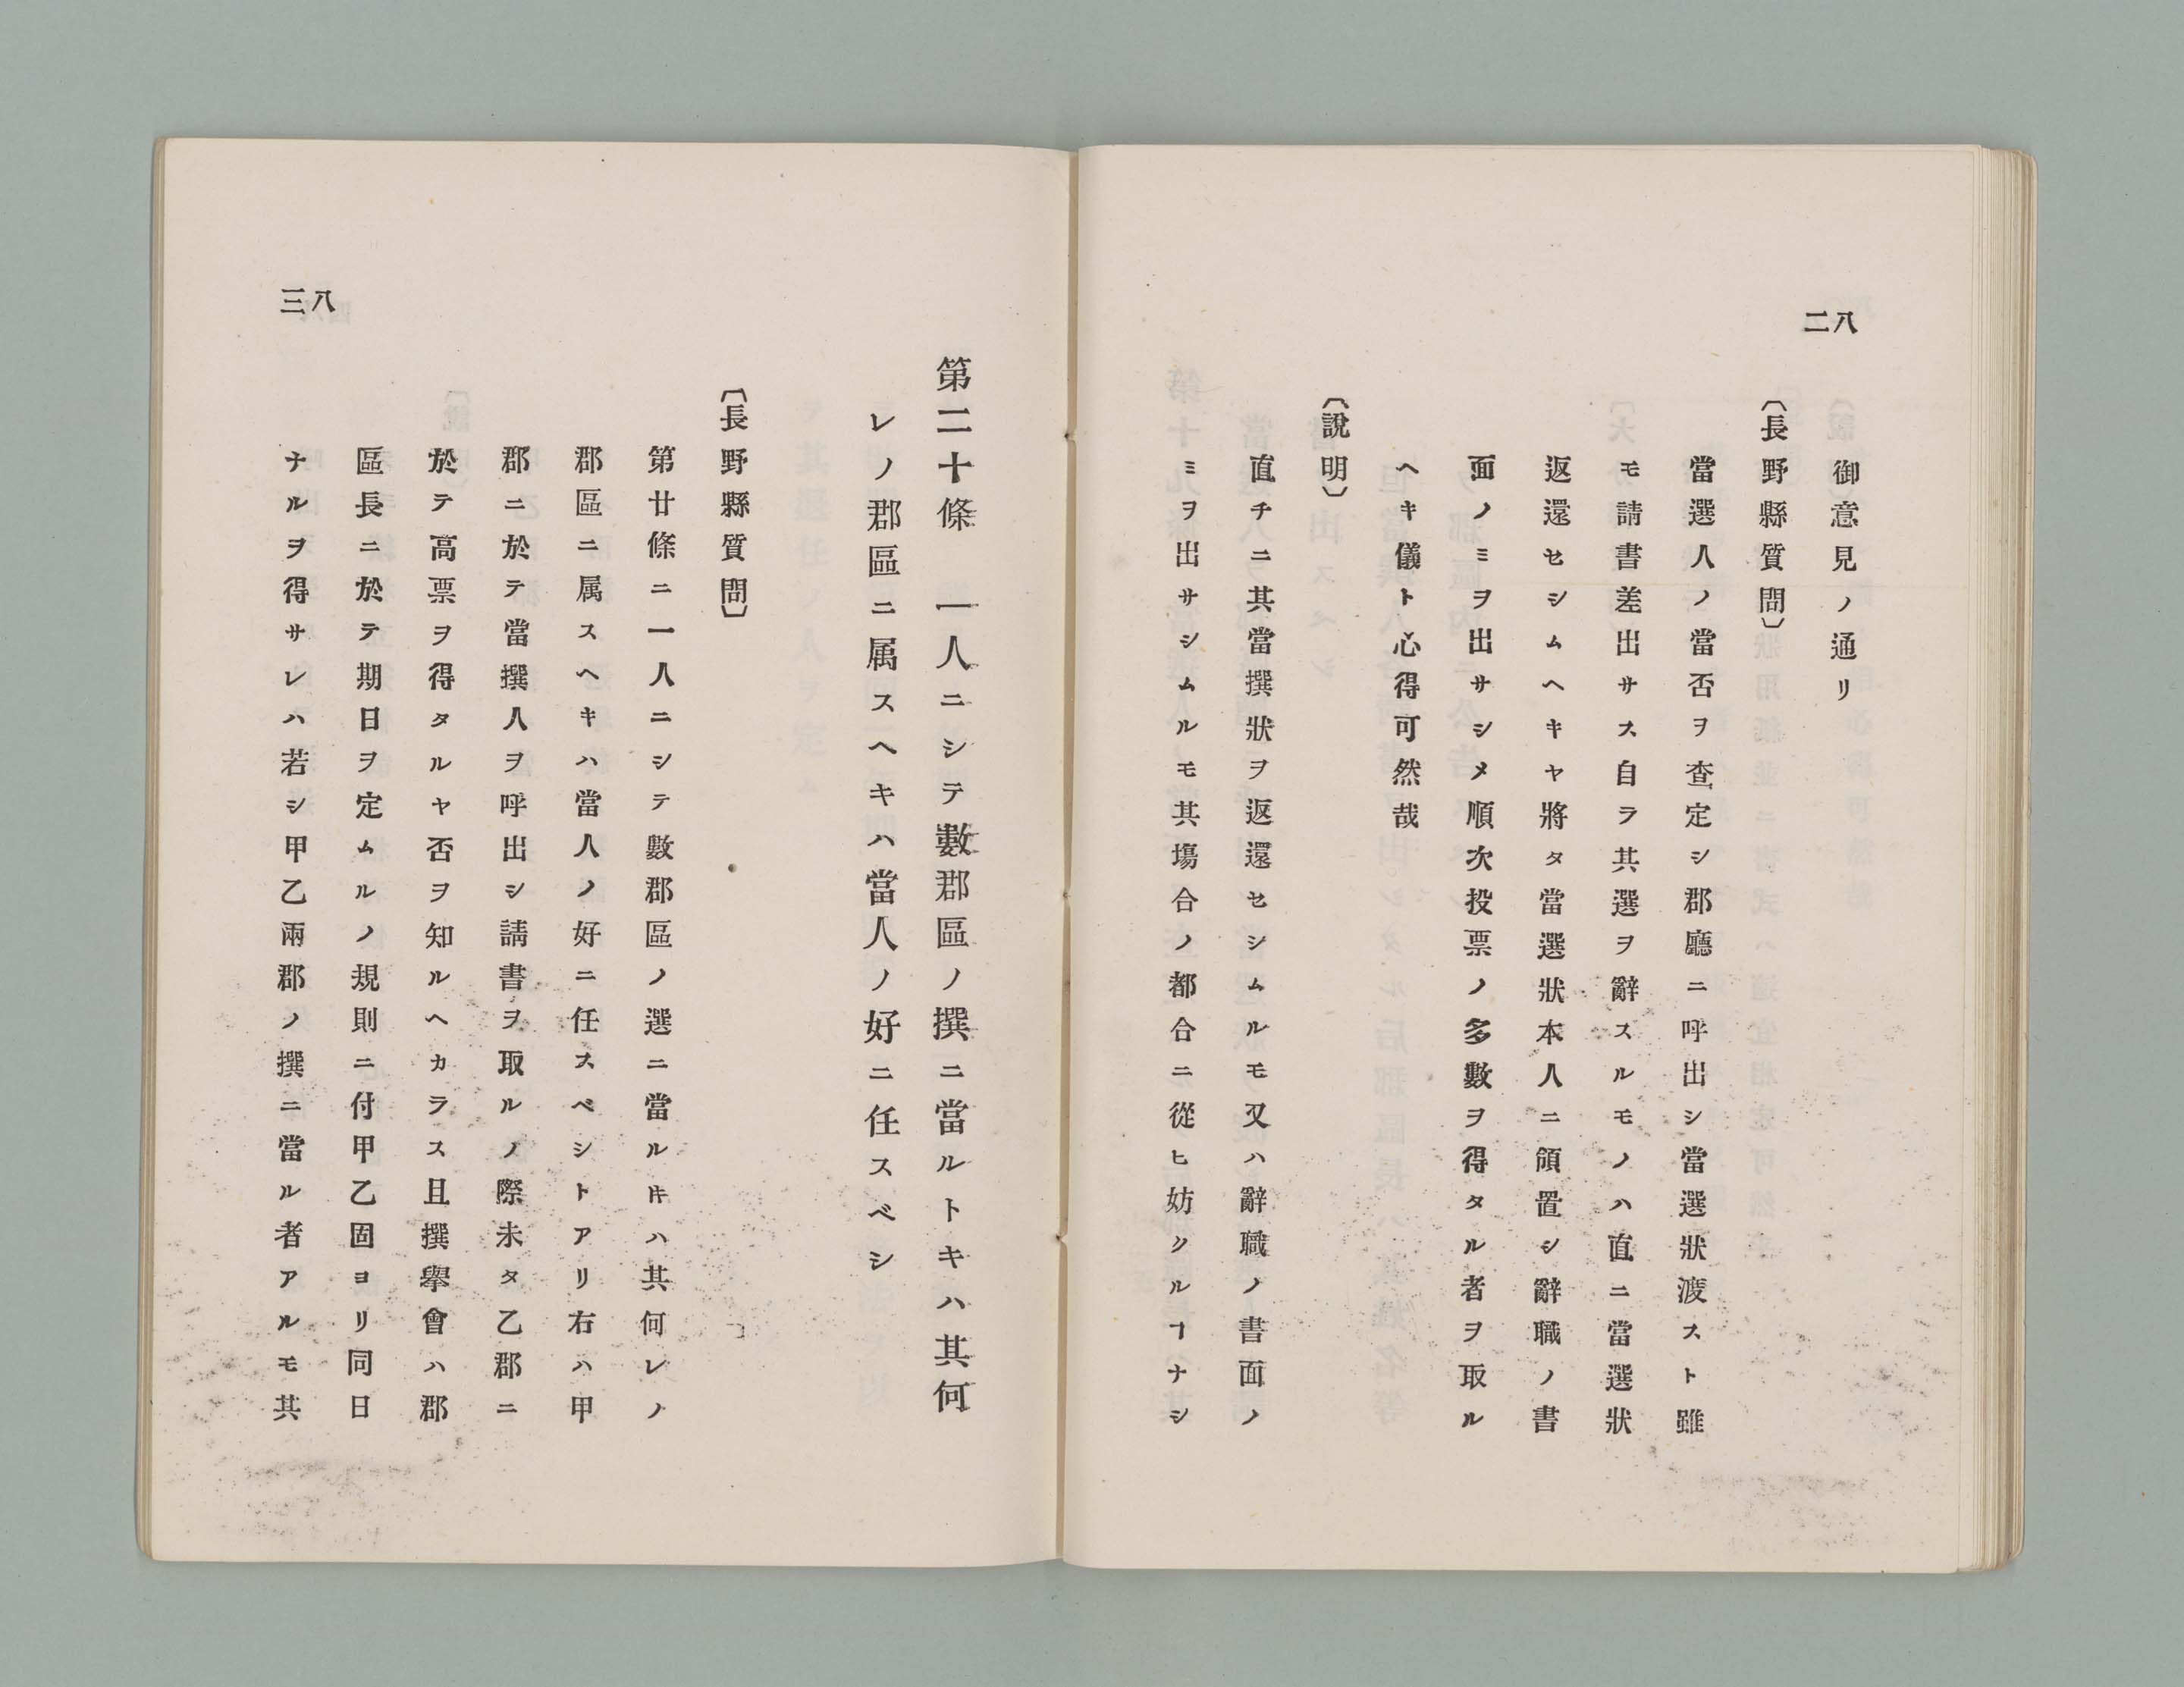 二八
御意見ノ通リ
〔長野縣質問〕
當選人ノ當否ヲ查定シ郡廳ニ呼出シ當選狀渡スト雖
モ請書差出サス自ラ其選ヲ辭スルモノハ直ニ當選狀
返還セシムヘキヤ將タ當選狀本人ニ領置シ辭職ノ書
面ノミヲ出サシメ順次投票ノ多數ヲ得タル者ヲ取ル
ヘキ儀ト心得可然哉
〔說明〕
直チニ其當撰狀ヲ返還セシムルモ又ハ辭職ノ書面ノ
ミヲ出サシムルモ其塲合ノ都合ニ從ヒ妨クルヿナシ
三八
第二十條　一人ニシテ數郡區ノ撰ニ當ルトキハ其何
レノ郡區ニ属スヘキハ當人ノ好ニ任スベシ
〔長野縣質問〕
第廿條ニ一人ニシテ數郡區ノ選ニ當ルキハ其何レノ
郡區ニ属スヘキハ當人ノ好ニ任スベシトアリ右ハ甲
郡ニ於テ當撰人ヲ呼出シ請書ヲ取ルノ際未タ乙郡ニ
於テ高票ヲ得タルヤ否ヲ知ルヘカラス且撰擧會ハ郡
區長ニ於テ期日ヲ定ムルノ規則ニ付甲乙固ヨリ同日
ナルヲ得サレハ若シ甲乙兩郡ノ撰ニ當ル者アルモ其